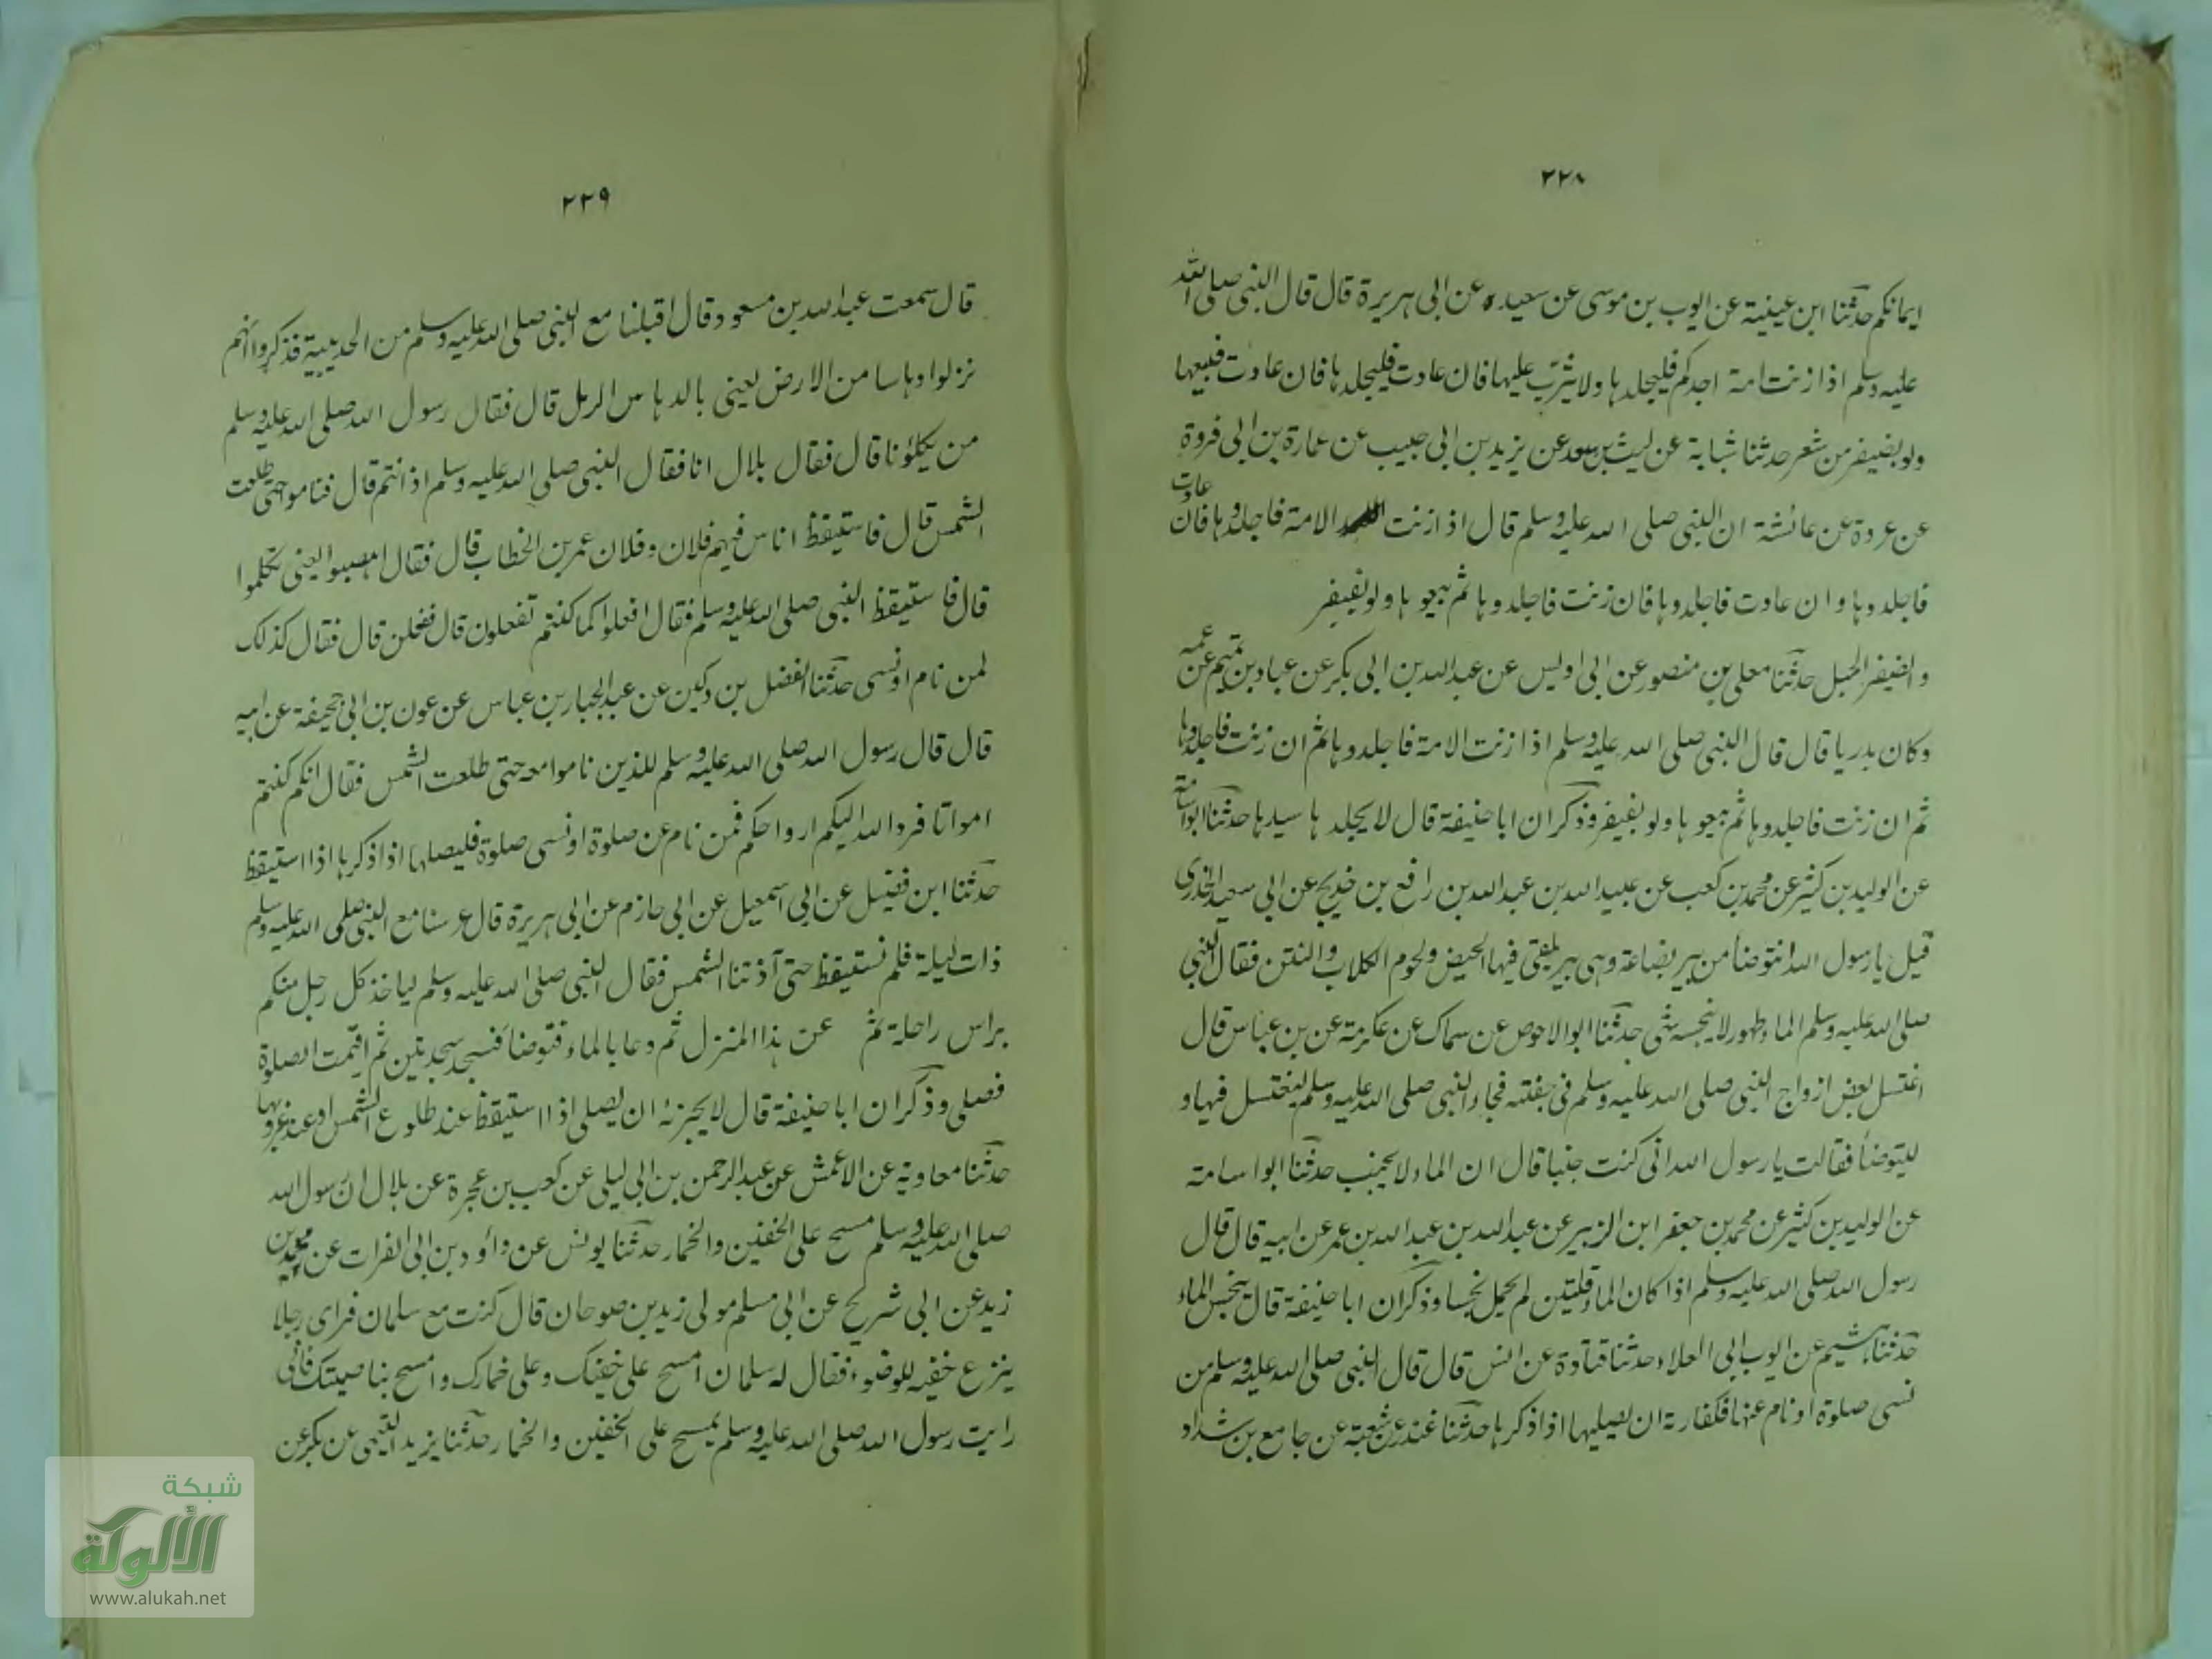 ٢٢٨
ايمانكم حدثنا ابن عيينة عن ايوب بن موسى عن سعيد عن ابى هريرة قال قال النبى صلى الله
عليه وسلم اذا زنت امة احدكم فليجلدها ولا يثرب عليها فان عادت فليجلدها فان عادت فليبعها
ولو بضفير من شعر حدثنا شبابة عن ليث بن سعد عن يزيد بن ابى حبيب عن عمارة بن ابى فروة
عن عروة عن عائشة ان النبى صلى الله عليه وسلم قال اذا زنت الامة فاجلدوها فان عادت
فاجلدوها وان عادت فاجلدوها فان زنت فاجلدوها ثم بيعوها ولو بضفير
والضفير الحبل حدثنا معلى بن منصور عن ابى اويس عن عبد الله بن ابى بكر عن عباد بن تميم عن عمه
وكان بدريا قال قال النبى صلى الله عليه وسلم اذا زنت الامة فاجلدوها ثم ان زنت فاجلدوها
ثم ان زنت فاجلدوها ثم بيعوها ولو بضفير وذكر ان ابا حنيفة قال لا يجلدها سيدها حدثنا ابو اسامة
عن الوليد بن كثير عن محمد بن كعب عن عبيد الله بن عبد الله بن رافع بن خديج عن ابى سعيد الخدرى
قيل يا رسول الله انتوضأ من بير بضاعة وهى بير يلقى فيها الحيض ولحوم الكلاب والنتن فقال النبى
صلى الله عليه وسلم الماء طهور لا ينجسه شى حدثنا ابو الاحوص عن سماك عن عكرمة عن بن عباس قال
اغتسل بعض ازواج النبى صلى الله عليه وسلم فى جفنته فجاء النبى صلى الله عليه وسلم ليغتسل فيها و
ليتوضأ فقالت يا رسول الله انى كنت جنبا قال ان الماء لا يجنب حدثنا ابو اسامة
عن الوليد بن كثير عن محمد بن جعفر ابن الزبير عن عبد الله بن عبد الله بن عمر عن ابيه قال قال
رسول الله صلى الله عليه وسلم اذا كان الماء قلتين لم يحمل نجسا وذكر ان ابا حنيفة قال ينجس الماء
حدثنا هشيم عن ايوب ابى العلاء حدثنا قتادة عن انس قال قال النبى صلى الله عليه وسلم من
نسى صلوة او نام عنها فكفارته ان يصليها اذا ذكرها حدثنا غندر عن شعبة عن جامع بن شداد
٢٢٩
قال سمعت عبد الله بن مسعود قال اقبلنا مع النبى صلى الله عليه وسلم من الحديبية فذكروا انهم
نزلوا دهاسا من الارض يعنى بالدهاس الرمل قال فقال رسول الله صلى الله عليه وسلم
من يكلؤنا قال فقال بلال انا فقال النبى صلى الله عليه وسلم اذا نتم قال فناموا حتى طلعت
الشمس قال فاستيقظ اناس فيهم فلان وفلان عمر بن الخطاب قال فقال اهضبوا يعنى تكلموا
قال فاستيقظ النبى صلى الله عليه وسلم فقال افعلوا كما كنتم تفعلون قال ففعلن قال فقال كذلك
لمن نام او نسى حدثنا الفضل بن دكين عن عبد الجبار بن عباس عن عون بن ابى جحيفة عن ابيه
قال قال رسول الله صلى الله عليه وسلم للذين ناموا معه حتى طلعت الشمس فقال انكم كنتم
امواتا فرد الله اليكم ارواحكم فمن نام عن صلوة او نسى صلوة فليصلها اذا ذكرها اذا استيقظ
حدثنا ابن فضيل عن ابى اسمعيل عن ابى حازم عن ابى هريرة قال عرسنا مع النبى صلى الله عليه وسلم
ذات ليلة فلم نستيقظ حتى آذتنا الشمس فقال النبى صلى الله عليه وسلم لياخذ كل رجل منكم
براس راحلة ثم عن هذا المنزل ثم دعا بالماء فتوضأ فسجد سجدتين ثم اقيمت الصلوة
فصلى وذكر ان ابا حنيفة قال لا يجزئه ان يصلى اذا استيقظ عند طلوع الشمس او عند غروبها
حدثنا معاوية عن الاعمش عن عبد الرحمن بن ابى ليلى عن كعب بن عجرة عن بلال ان رسول الله
صلى الله عليه وسلم مسح على الخفين والخمار حدثنا يونس عن داؤد بن ابى الفرات عن محمد بن
زيد عن ابى شريح عن ابى مسلم مولى زيد بن صوحان قال كنت مع سلمان فراى رجلا
ينزع خفيه للوضوء فقال له سلمان امسح على خفيك وعلى خمارك وامسح بناصيتك فانى
رايت رسول الله صلى الله عليه وسلم يمسح على الخفين والخمار حدثنا يزيد التيمى عن بكر عن
شبكة
الألوكة
www.alukah.net